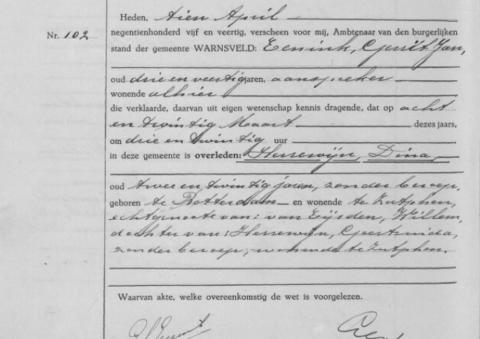 Heden, tien April
Nr. 102
negentienhonderd vijf en veertig, verscheen voor mij, Ambtenaar van den burgerlijken
stand der gemeente WARNSVELD: Eenink, Gerrit Jan,
oud drie en veertig jaren, aanspreker
wonende alhier
die verklaarde, daarvan uit eigen wetenschap kennis dragende, dat op acht
en twintig Maart dezes jaars,
om drie en twintig uur
in deze gemeente is overleden: Herrewijn, Dina,
oud twee en twintig jaren, zonder beroep,
geboren te Rotterdam en wonende te Zutphen,
echtgenoote van: van Eijsden, Willem,
dochter van: Herrewijn, Geertruida,
zonder beroep, wonende te Zutphen.
Waarvan akte, welke overeenkomstig de wet is voorgelezen.